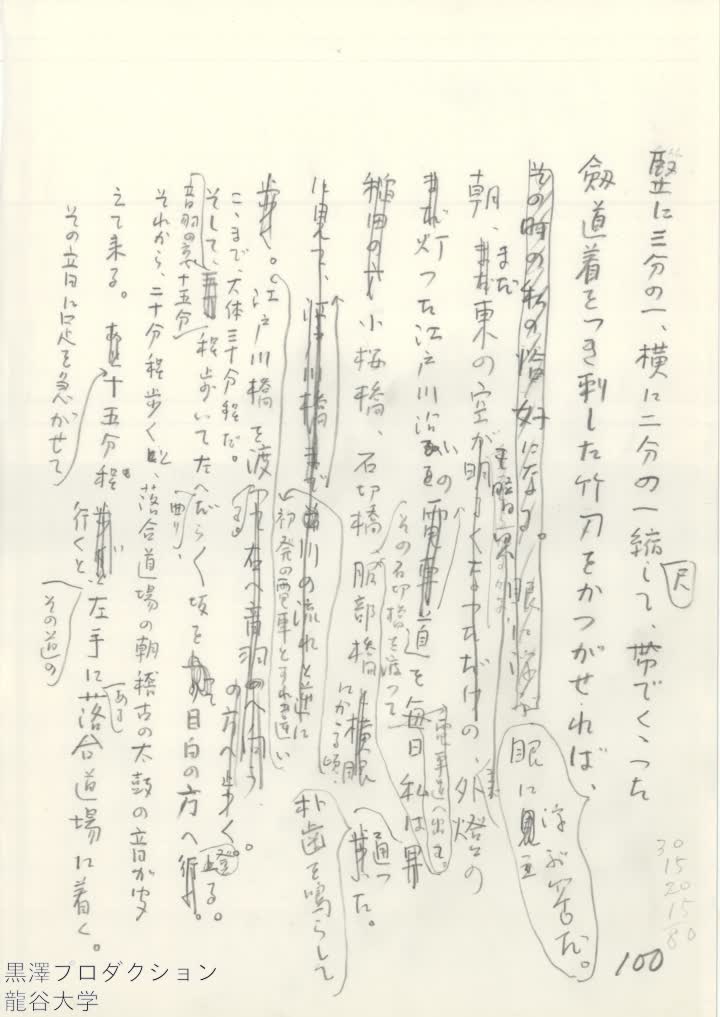 竪に三分の一、横に二分の一縮尺して、帯でくくった
剣道着をつき刺した竹刀をかつがせれば、
その時の私の恰好になる。眼に浮ぶ
眼に見
浮ぶ筈だ。
朝、まだ東の空が明るくなっただけの、外燈の
まだ灯った江戸川沿いの電車道を毎日私は
その石切橋を渡って
電車道へ出る。
小桜橋、石切橋、服部橋
にかかる頃、
横眼
通った。
に見て、江戸川橋まで
川の流れと逆に
初発の電車とすれ違い
朴歯を鳴らして
歩く。江戸川橋を渡
る。
右へ音羽の方へ歩く。
ここまで、大体三十分程だ。
そして、十五分程歩いてだらだら坂を目白の方へ登る。
音羽の
曲り、
それから、二十分程歩くと、落合道場の朝稽古の太鼓の音が
える来る。
十五分程
行くと、左手に
ある
落合道場に着く。
その音に足を急がせて
その道の
30
15
20
15
80
100
黒澤プロダクション
龍谷大学